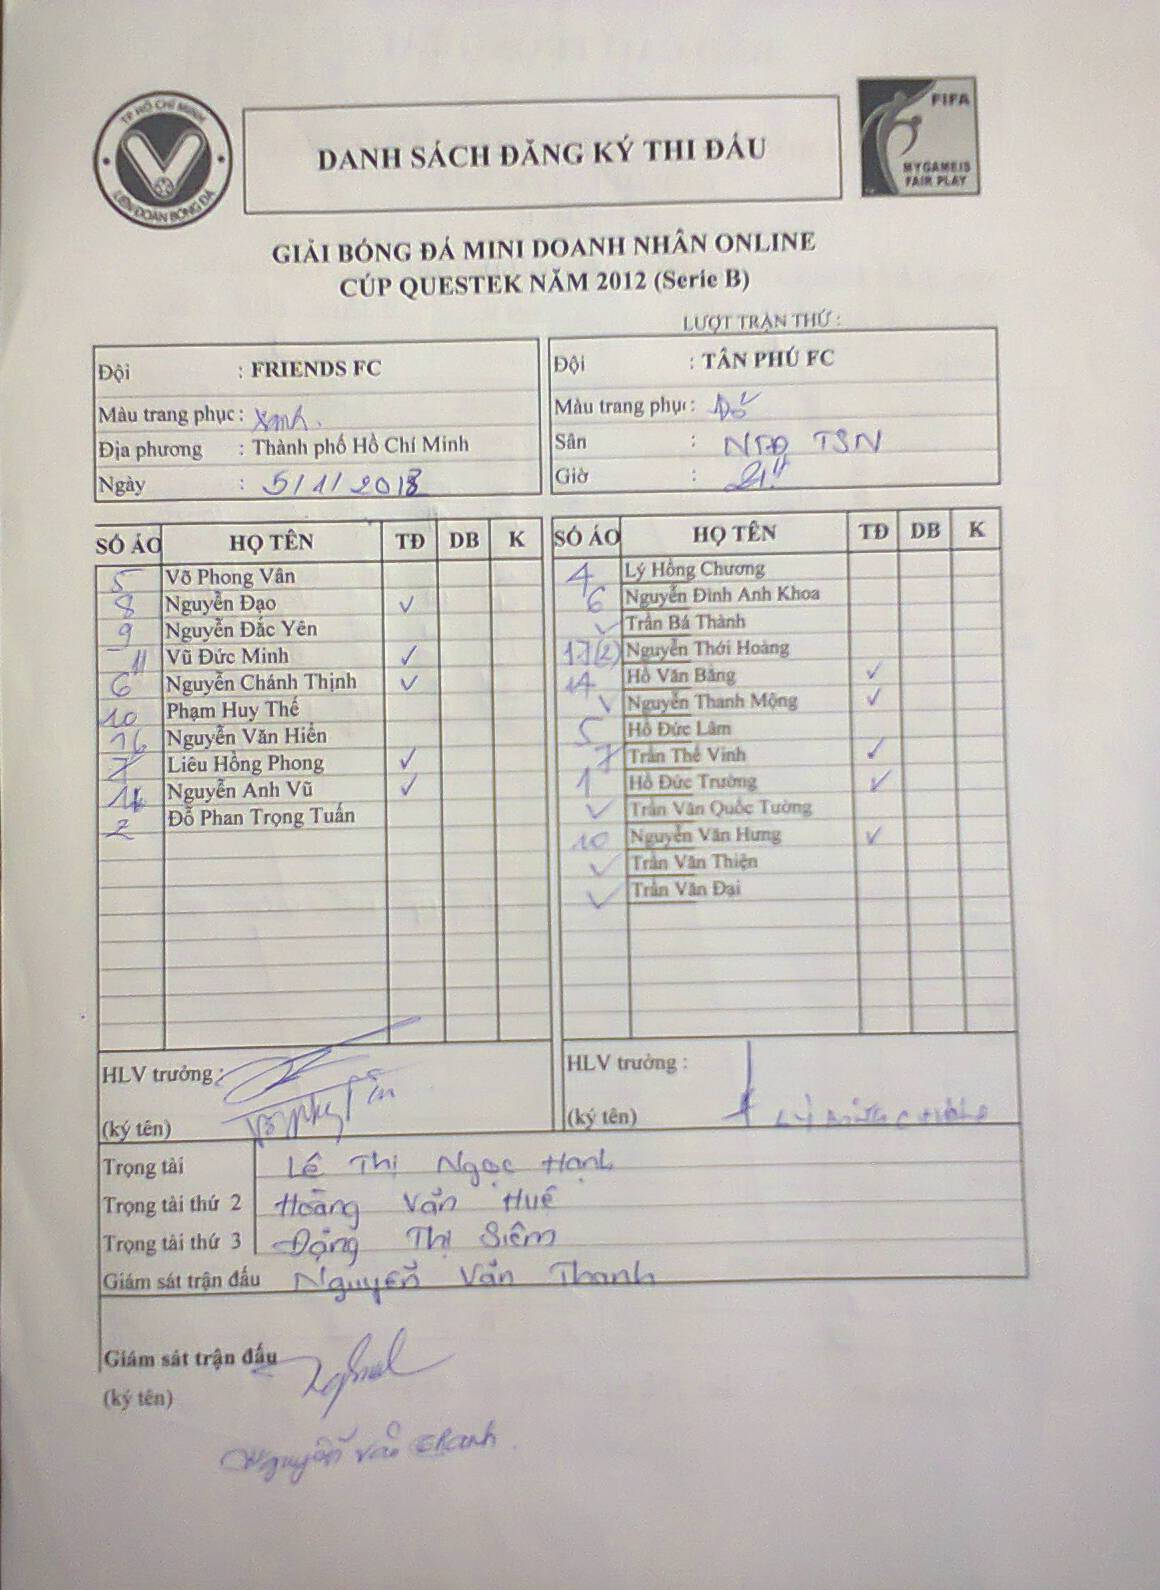 TP HỒ CHÍ MINH
LIÊN ĐOÀN BÓNG ĐÁ
DANH SÁCH ĐĂNG KÝ THI ĐẤU
FIFA
MY GAME IS
FAIR PLAY
GIẢI BÓNG ĐÁ MINI DOANH NHÂN ONLINE
CÚP QUESTEK NĂM 2012 (Serie B)
LƯỢT TRẬN THỨ :
Đội : FRIENDS FC
Màu trang phục : Xanh.
Địa phương : Thành phố Hồ Chí Minh
Ngày : 5/1/2013
Đội : TÂN PHÚ FC
Màu trang phục : Đỏ
Sân : NTĐ TSN
Giờ : 21H
SỐ ÁO HỌ TÊN TĐ DB K
5 Võ Phong Vân
8 Nguyễn Đạo ✓
9 Nguyễn Đắc Yên
11 Vũ Đức Minh ✓
6 Nguyễn Chánh Thịnh ✓
10 Phạm Huy Thế
16 Nguyễn Văn Hiền
7 Liêu Hồng Phong ✓
14 Nguyễn Anh Vũ ✓
2 Đỗ Phan Trọng Tuấn
SỐ ÁO HỌ TÊN TĐ DB K
4 Lý Hồng Chương
6 Nguyễn Đình Anh Khoa
✓ Trần Bá Thành
17(2) Nguyễn Thới Hoàng
14 Hồ Văn Bằng ✓
✓ Nguyễn Thanh Mộng ✓
5 Hồ Đức Lâm
7 Trần Thế Vinh ✓
1 Hồ Đức Trường ✓
✓ Trần Văn Quốc Tường
10 Nguyễn Văn Hưng ✓
✓ Trần Văn Thiện
✓ Trần Văn Đại
HLV trưởng :
(ký tên)
HLV trưởng :
(ký tên) Lý Hồng Chương
Trọng tài Lê Thị Ngọc Hạnh
Trọng tài thứ 2 Hoàng Văn Huệ
Trọng tài thứ 3 Đặng Thị Siêm
Giám sát trận đấu Nguyễn Văn Thanh
Giám sát trận đấu
(ký tên)
Nguyễn Văn Thanh